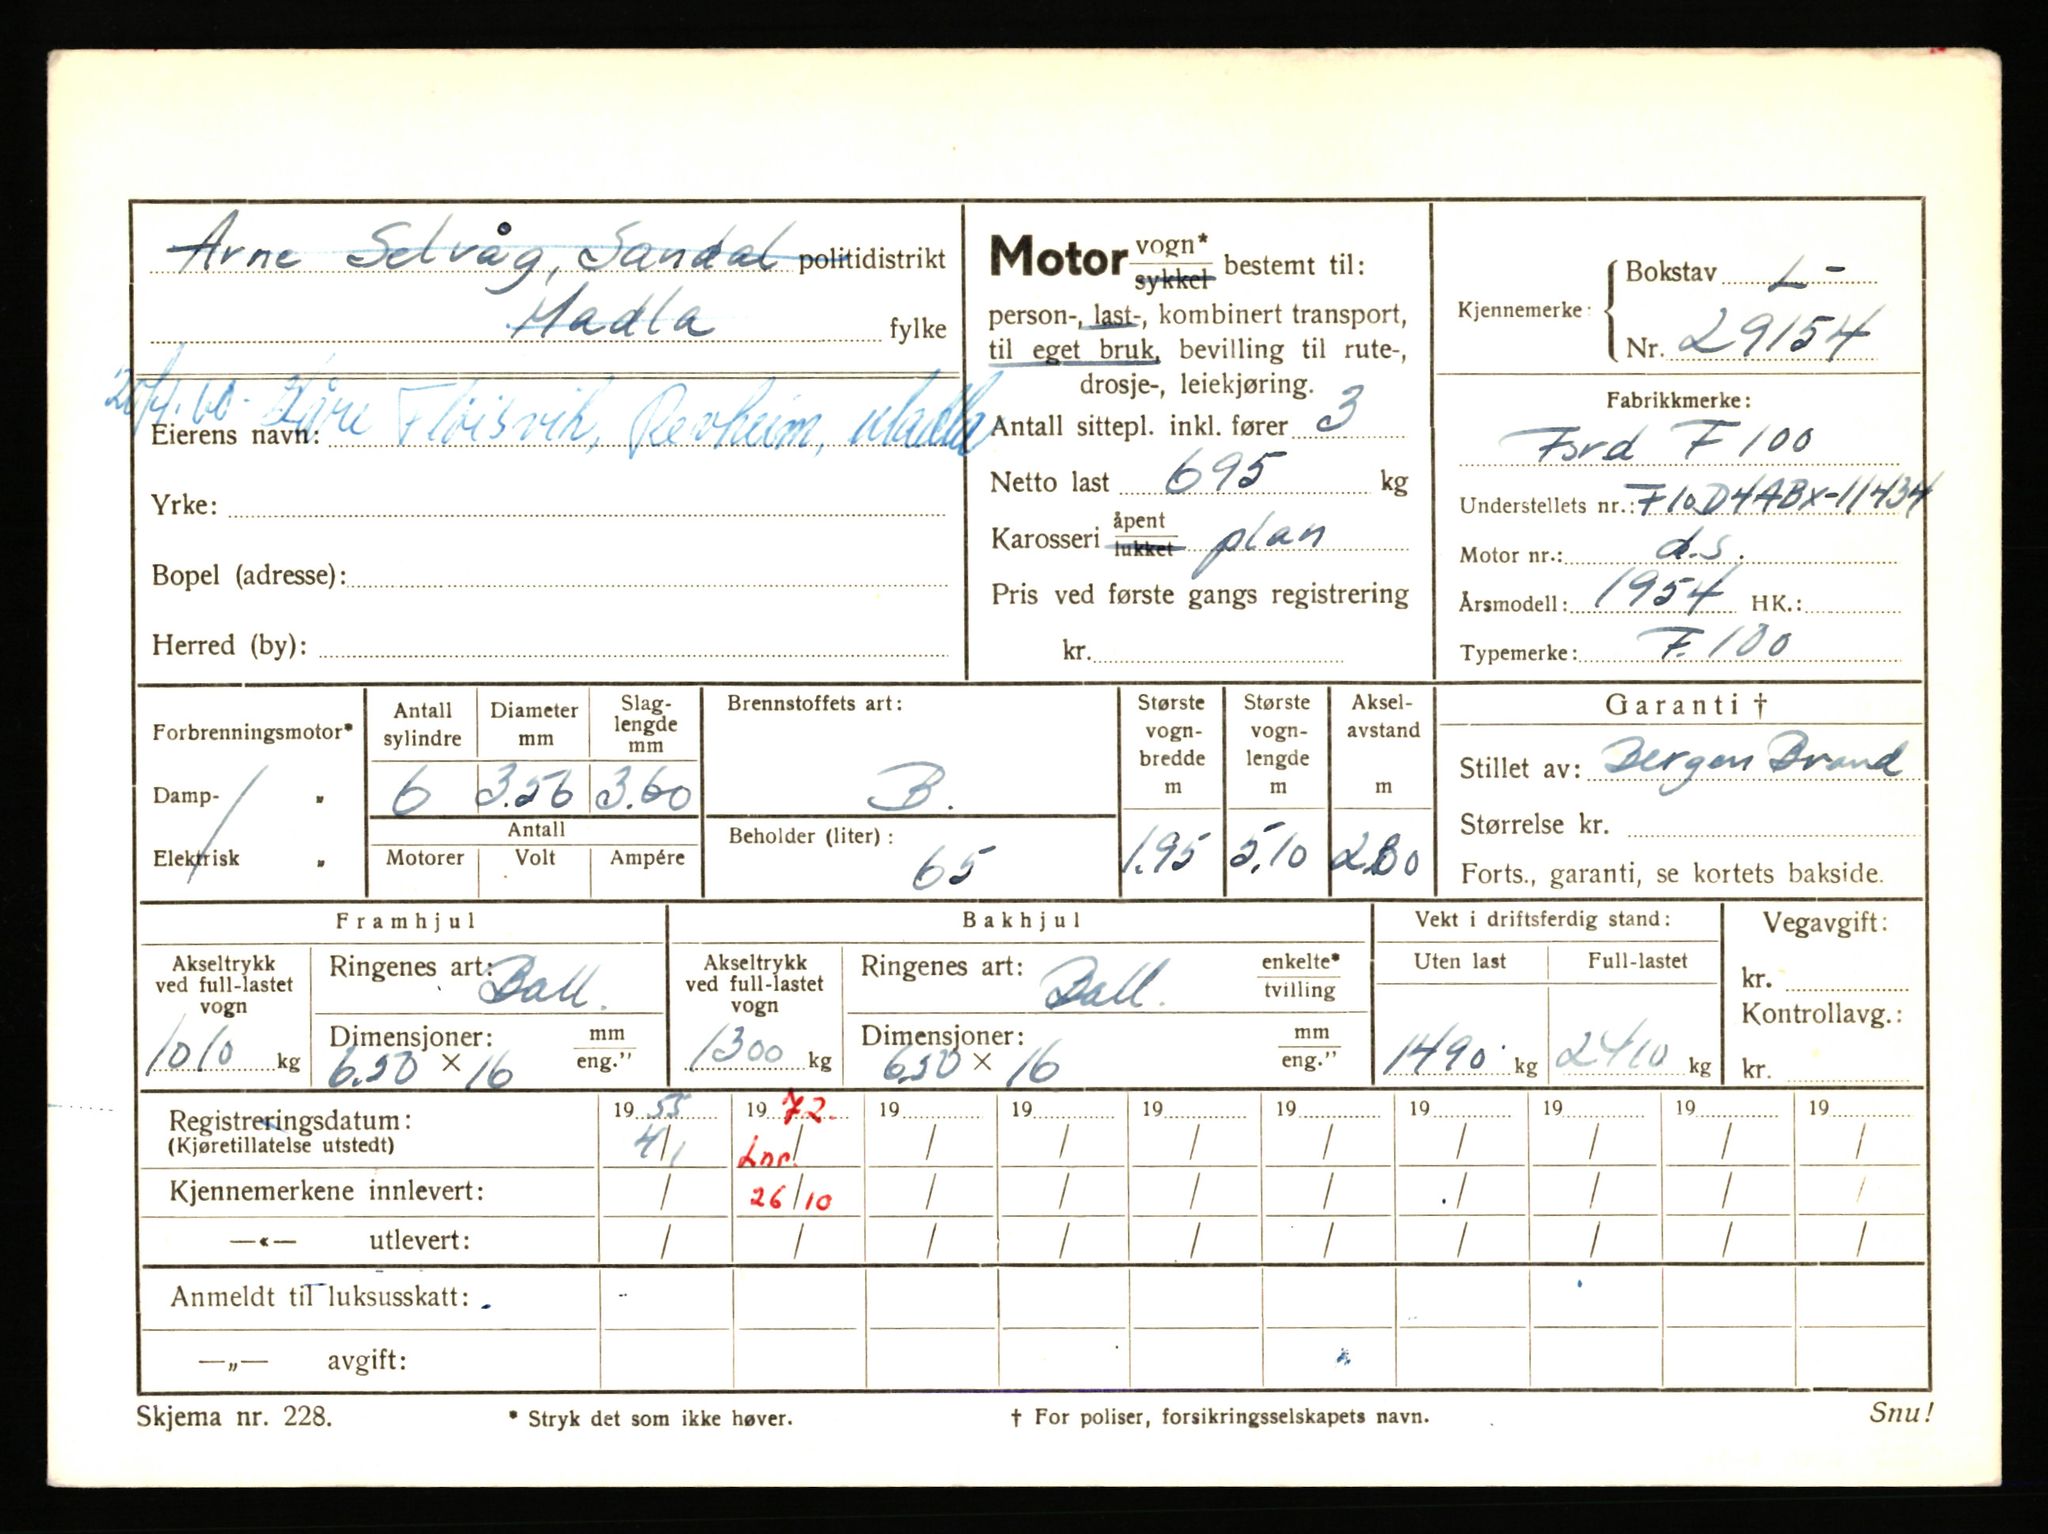 Arne Selvåg, Sandal politidistrikt
Madla fylke
20/4.60- Kåre Fløisvik, Revheim, Madla
Eierens navn:
Yrke:
Bopel (adresse):
Herred (by):
Motor vogn* sykkel bestemt til:
person-, last-, kombinert transport,
til eget bruk, bevilling til rute-,
drosje-, leiekjøring.
Antall sittepl. inkl. fører 3
Netto last 695 kg
Karosseri åpent lukket plan
Pris ved første gangs registrering
kr.
Kjennemerke: Bokstav L-
Nr. 29154
Fabrikkmerke:
Ford F 100
Understellets nr.: F10D4ABX-11434
Motor nr.: d.s.
Årsmodell: 1954 HK.:
Typemerke: F.100
Forbrenningsmotor*
Damp- „
Elektrisk „
Antall sylindre Diameter mm Slag-lengde mm
6 3.56 3.60
Antall
Motorer Volt Ampére
Brennstoffets art:
B.
Beholder (liter):
65
Største vogn-bredde m Største vogn-lengde m Aksel-avstand m
1.95 5,10 2.80
Garanti †
Stillet av: Bergen Brand
Størrelse kr.
Forts., garanti, se kortets bakside.
Framhjul
Akseltrykk ved full-lastet vogn
1010 kg
Ringenes art: Ball.
Dimensjoner: mm eng."
6.50 × 16
Bakhjul
Akseltrykk ved full-lastet vogn
1300 kg
Ringenes art: Ball. enkelte* tvilling
Dimensjoner: mm eng."
6.50 × 16
Vekt i driftsferdig stand:
Uten last Full-lastet
1490 kg 2410 kg
Vegavgift:
kr.
Kontrollavg.:
kr.
Registreringsdatum: 19 55 19 72. 19 19 19 19 19 19 19 19
(Kjøretillatelse utstedt) 4/1 Lnr. / / / / / / / / /
Kjennemerkene innlevert: / 26/10 / / / / / / / /
—«— utlevert: / / / / / / / / / /
Anmeldt til luksusskatt:
—„— avgift:
Skjema nr. 228. * Stryk det som ikke høver. † For poliser, forsikringsselskapets navn. Snu!